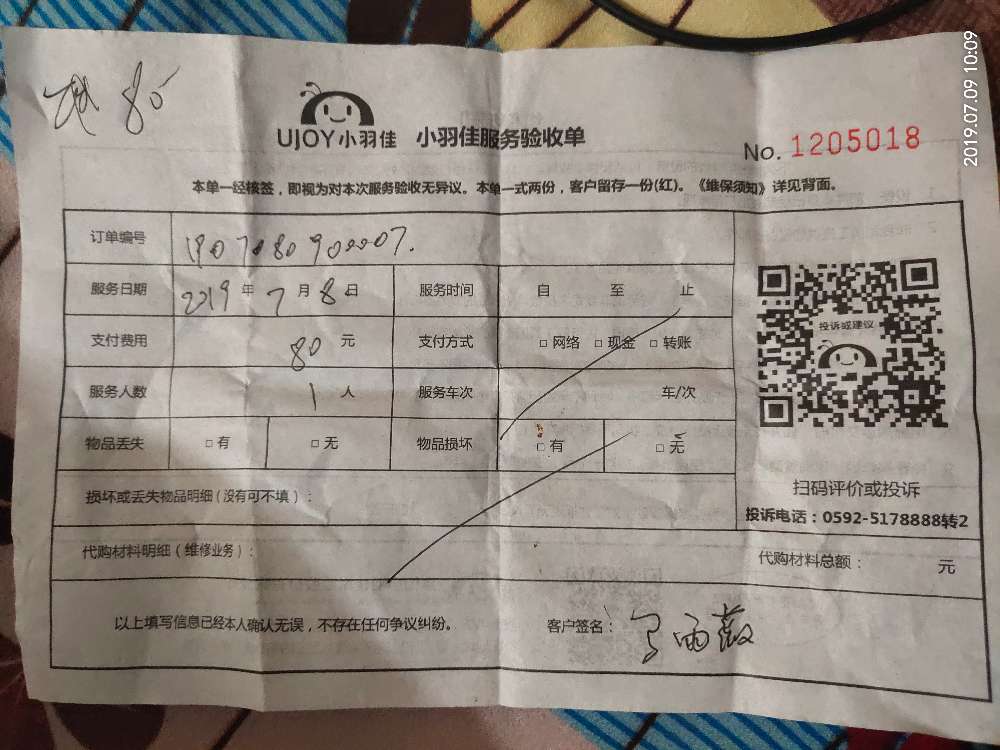 2019.07.09 10:09
80
UJOY小羽佳 小羽佳服务验收单
No. 1205018
本单一经核签，即视为对本次服务验收无异议。本单一式两份，客户留存一份(红)。《维保须知》详见背面。
订单编号 190708090007.
服务日期 2019年7月8日 服务时间 自 至 止
投诉或建议
支付费用 80元 支付方式 □网络 □现金 □转账
服务人数 1人 服务车次 车/次
物品丢失 □有 □无 物品损坏 □有 □无
扫码评价或投诉
损坏或丢失物品明细(没有可不填)：
投诉电话：0592-5178888转2
代购材料明细(维修业务)： 代购材料总额： 元
以上填写信息已经本人确认无误，不存在任何争议纠纷。 客户签名： 雨薇